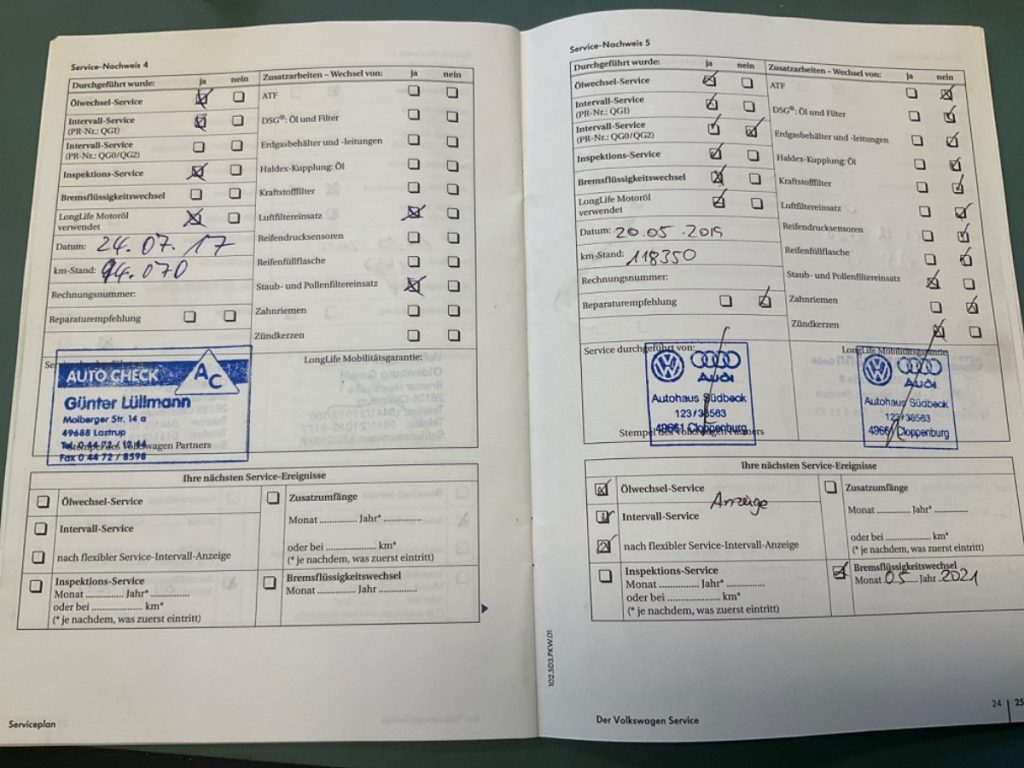 Service-Nachweis 4
Durchgeführt wurde: ja nein
Ölwechsel-Service
Intervall-Service
(PR-Nr.: QG1)
Intervall-Service
(PR-Nr.: QG0/QG2)
Inspektions-Service
Bremsflüssigkeitswechsel
LongLife Motoröl
verwendet
Datum: 24.07.17
km-Stand: 94.070
Rechnungsnummer:
Reparaturempfehlung
Zusatzarbeiten – Wechsel von: ja nein
ATF
DSG®: Öl und Filter
Erdgasbehälter und -leitungen
Haldex-Kupplung: Öl
Kraftstofffilter
Luftfiltereinsatz
Reifendrucksensoren
Reifenfüllflasche
Staub- und Pollenfiltereinsatz
Zahnriemen
Zündkerzen
AUTO CHECK AC
Günter Lüllmann
Molberger Str. 14 a
49688 Lastrup
Stempel des Volkswagen Partners
Fax 0 44 72 / 8598
LongLife Mobilitätsgarantie:
Ihre nächsten Service-Ereignisse
Ölwechsel-Service
Intervall-Service
nach flexibler Service-Intervall-Anzeige
Inspektions-Service
Monat ............. Jahr* .............
oder bei ................... km*
(* je nachdem, was zuerst eintritt)
Zusatzumfänge
Monat ............. Jahr* .............
oder bei ................... km*
(* je nachdem, was zuerst eintritt)
Bremsflüssigkeitswechsel
Monat ............. Jahr .............
Serviceplan
Service-Nachweis 5
Durchgeführt wurde: ja nein
Ölwechsel-Service
Intervall-Service
(PR-Nr.: QG1)
Intervall-Service
(PR-Nr.: QG0/QG2)
Inspektions-Service
Bremsflüssigkeitswechsel
LongLife Motoröl
verwendet
Datum: 20.05.2019
km-Stand: 118350
Rechnungsnummer:
Reparaturempfehlung
Zusatzarbeiten – Wechsel von: ja nein
ATF
DSG®: Öl und Filter
Erdgasbehälter und -leitungen
Haldex-Kupplung: Öl
Kraftstofffilter
Luftfiltereinsatz
Reifendrucksensoren
Reifenfüllflasche
Staub- und Pollenfiltereinsatz
Zahnriemen
Zündkerzen
Service durchgeführt von:
Audi
Autohaus Südbeck
123/38563
49661 Cloppenburg
Stempel des Volkswagen Partners
LongLife Mobilitätsgarantie
Audi
Autohaus Südbeck
123/38563
49661 Cloppenburg
Ihre nächsten Service-Ereignisse
Ölwechsel-Service
Anzeige
Intervall-Service
nach flexibler Service-Intervall-Anzeige
Inspektions-Service
Monat ............. Jahr* .............
oder bei ................... km*
(* je nachdem, was zuerst eintritt)
Zusatzumfänge
Monat ............. Jahr* .............
oder bei ................... km*
(* je nachdem, was zuerst eintritt)
Bremsflüssigkeitswechsel
Monat 05 Jahr 2021
102.5D3.PKW.01
Der Volkswagen Service
24 | 25